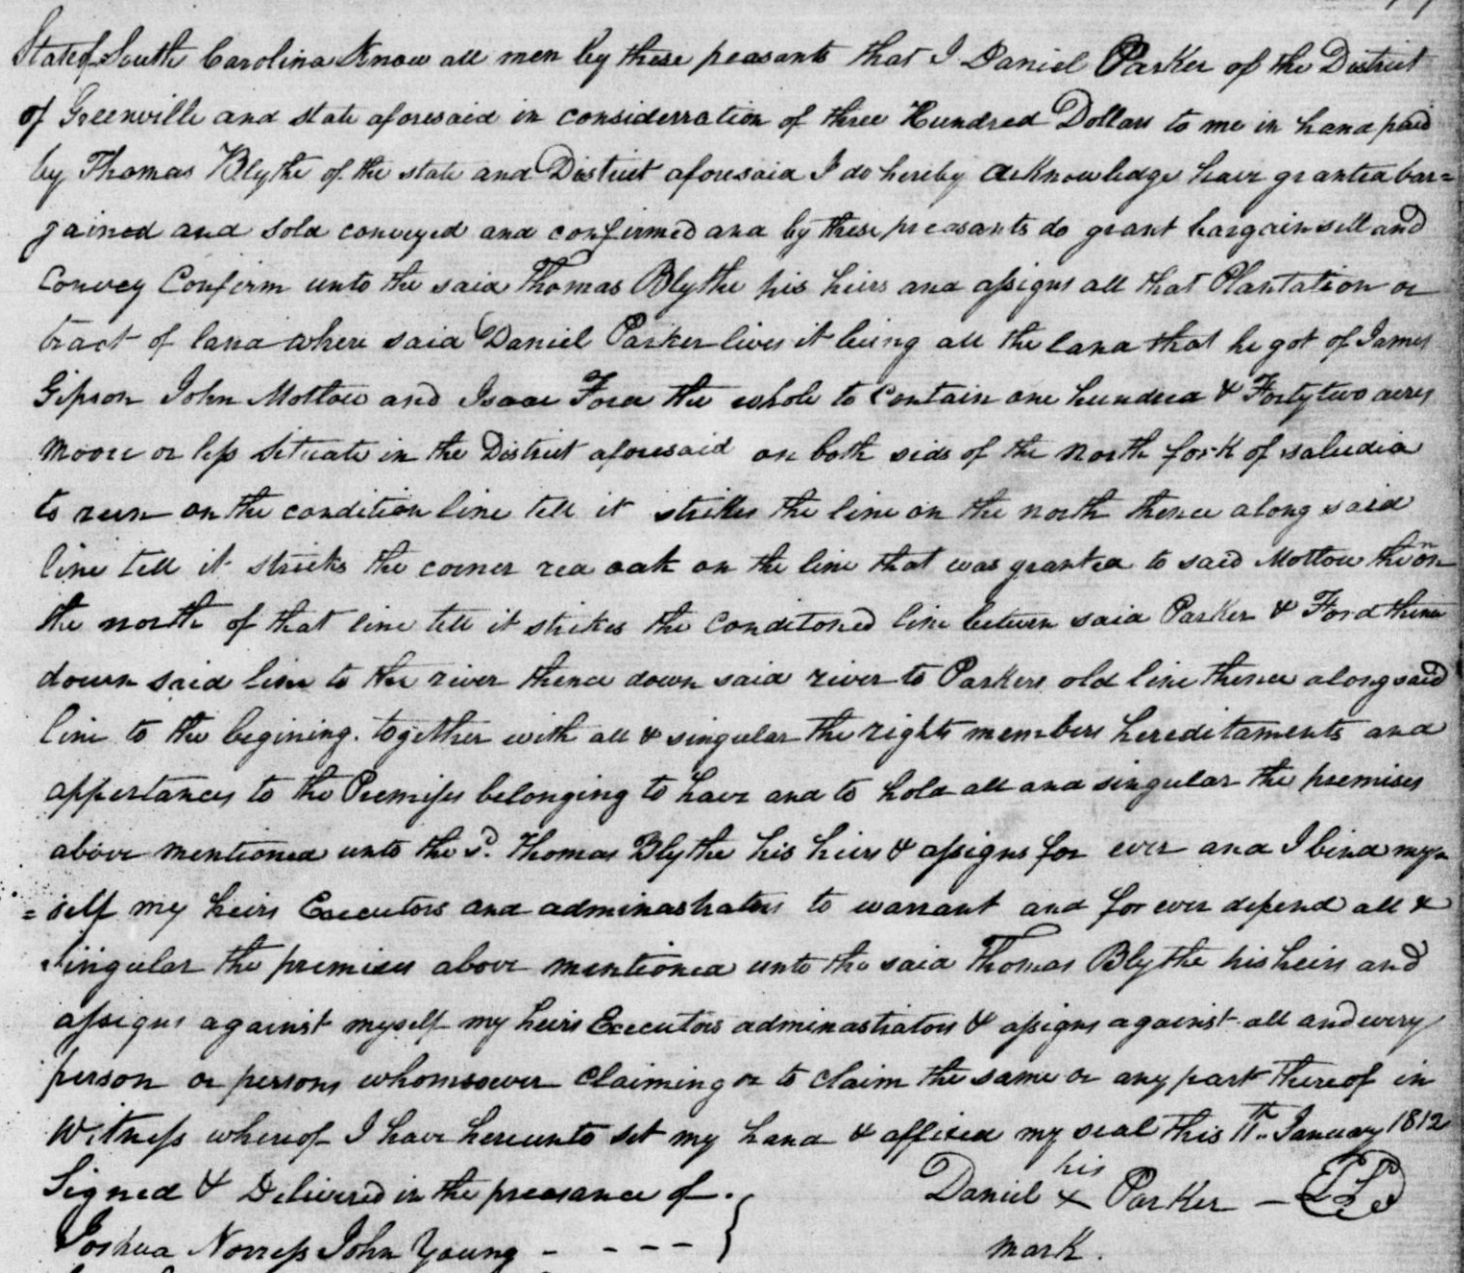 State of South Carolina Know all men by these peasants that I Daniel Parker of the District
of Greenville and state aforesaid in considerration of three Hundred Dollars to me in hand paid
by Thomas Blythe of the state and District aforesaid I do hereby acknowledge have granted bar=
gained and sold conveyed and confirmed and by these preasants do grant bargain sell and
Convey Confirm unto the said Thomas Blythe his heirs and assigns all that Plantation or
tract of land where said Daniel Parker lives it being all the land that he got of James
Gipson John Motlow and Isaac Ford the whole to contain one hundred & Forty two acres
moore or less Situate in the District aforesaid on both sids of the north fork of saludia
to run on the condition line tell it strikes the line on the north thence along said
line tell it streeks the corner red oak on the line that was granted to said Motlow then on
the north of that line tell it strikes the Conditoned line between said Parker & Ford thence
down said line to the river thence down said river to Parkers old line thence along said
line to the begining. together with all & singular the rights members hereditaments and
appertances to the Premises belonging to have and to hold all and singular the premises
above mentioned unto the sd. Thomas Blythe his heirs & assigns for ever and I bind my=
=self my heirs Executors and adminastrators to warrant and for ever defend all &
Singular the premises above mentioned unto the said Thomas Blythe his heirs and
assigns against myself my heirs Executors adminastrators & assigns against all and every
person or persons whomsoever Claiming or to claim the same or any part thereof in
Witness whereof I have hereunto set my hand & affixed my seal this 11th January 1812
Signed & Delivered in the preasance of. Daniel his x Parker - LS
Joshua Norress John Young - - - - mark.